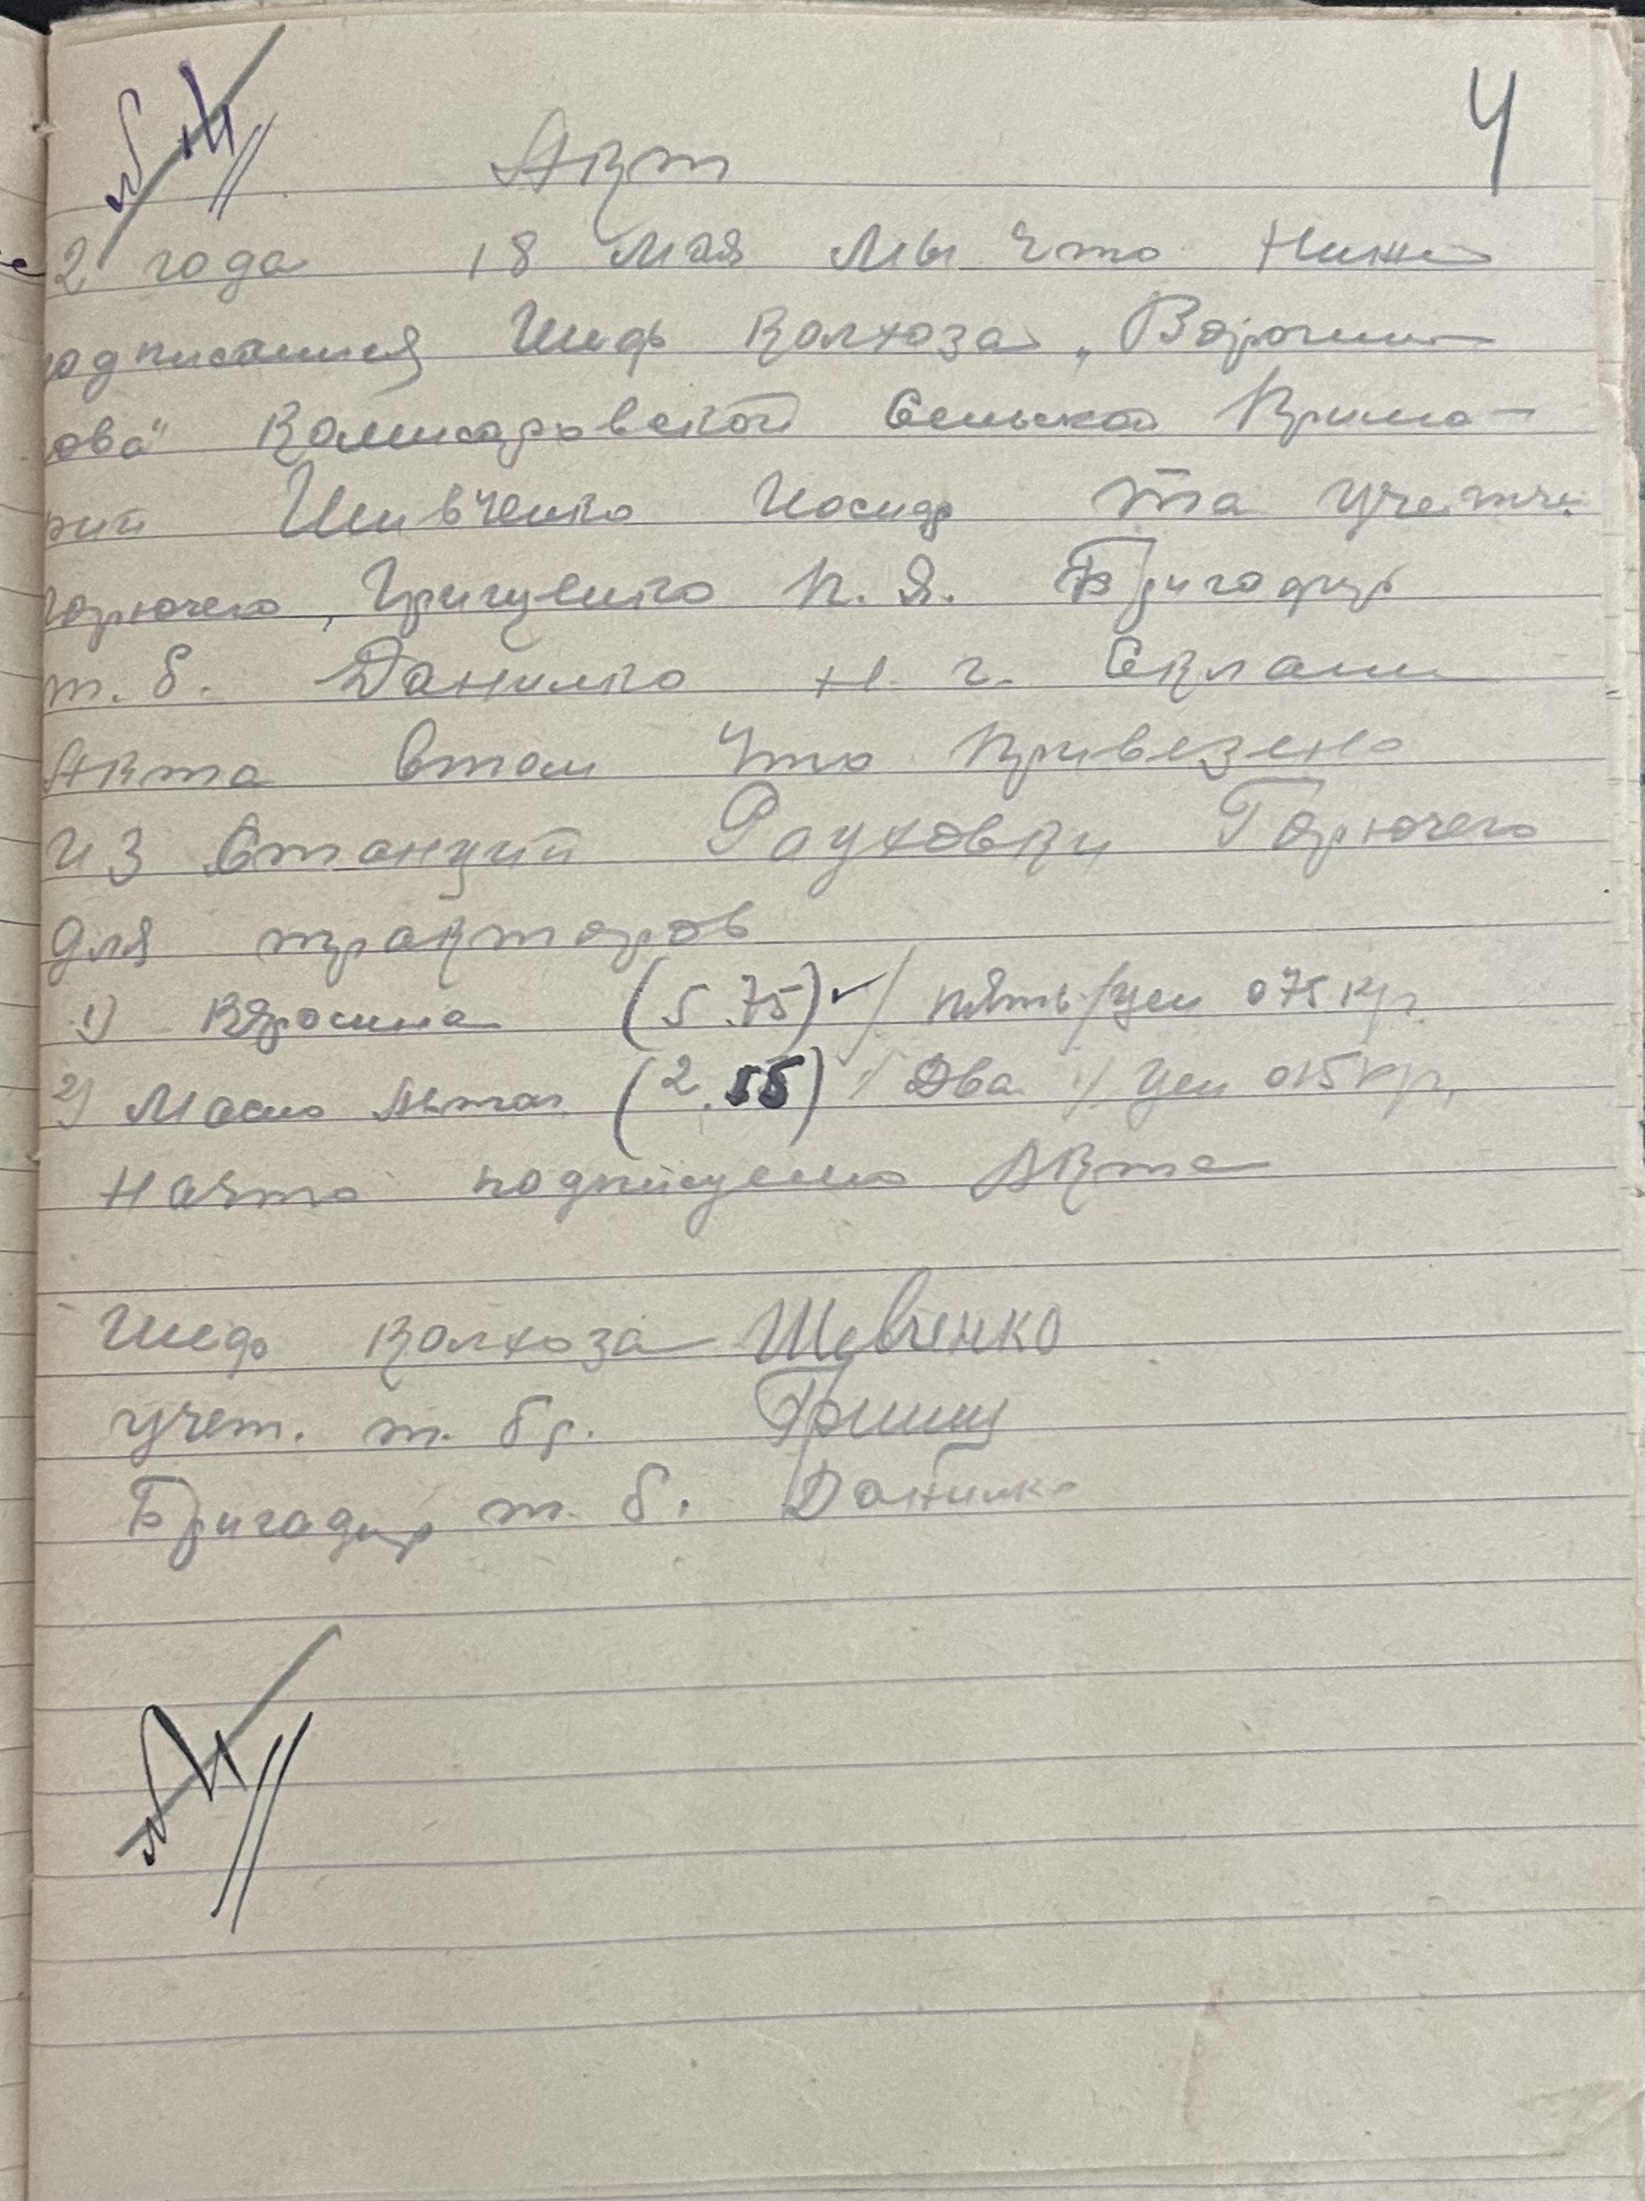 № 4
4
Акт
2 года 18 мая мы что Ниже
одписашися Шеф колхоза „Вороши
ова" Комисаровской Сельской Прима
рий Шивченко Иосиф та учетчи
горючего, Грицуенко П. Я. Бригадир
т. б. Данилко Н. г. Склали
Акта втом что привезено
из Станций Рауховки Горючего
для тракторов
1) Кяросина (5.75) / пять / цен 075 кр.
2) Масло Автол (2.55) / Два / цен 015 кр.
Начто подписуемо Акта
Шеф колхоза Шевченко
учет. т. бр. Гриц
Бригадир т. б. Данилко
№ 4